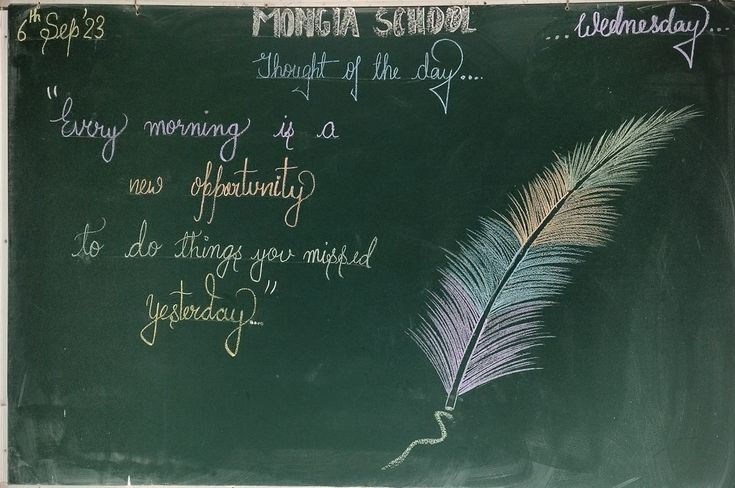 6th Sep'23
MONGIA SCHOOL
...Wednesday...
Thought of the day....
"Every morning is a
new opportunity
to do things you missed
yesterday..."